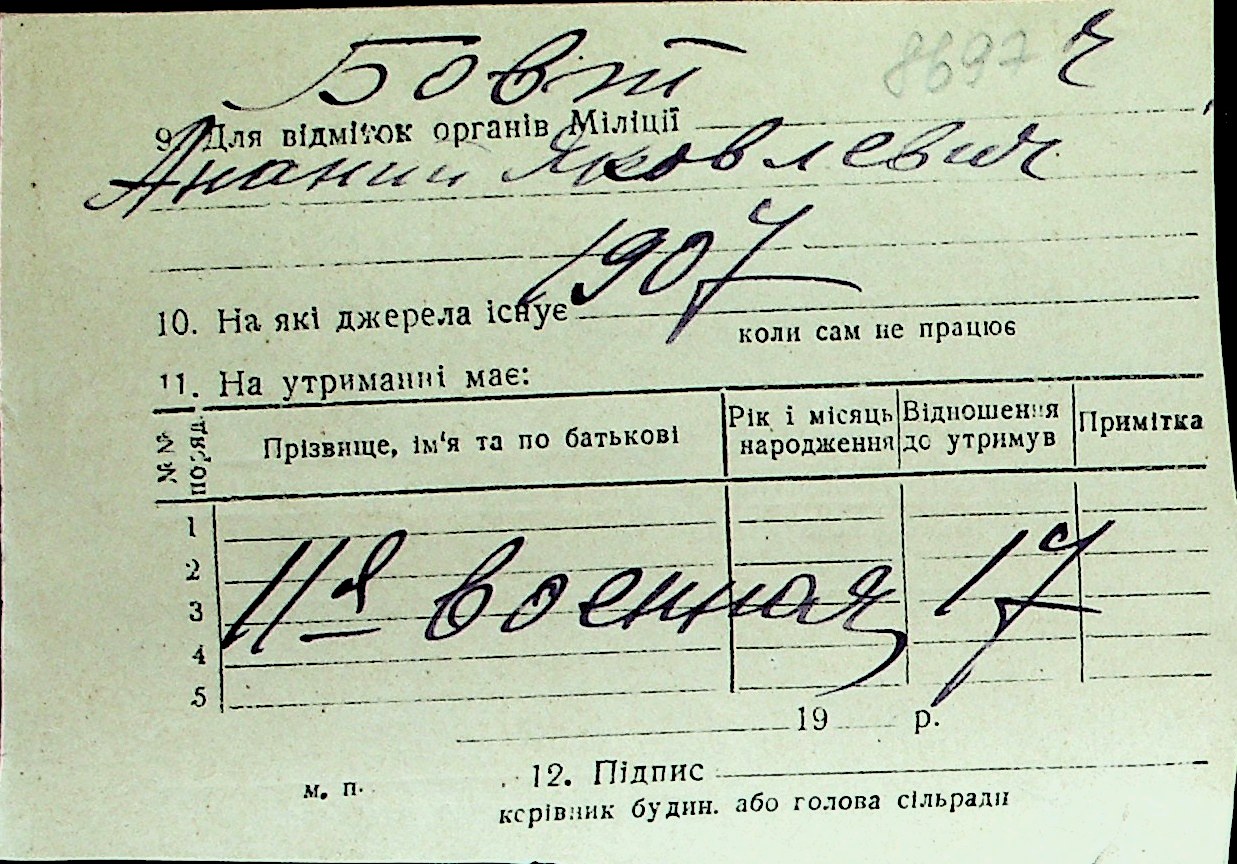 Бовт 8697 ч
9. Для відміток органів Міліції
Ананий Яковлевич
1907
10. На які джерела існує
коли сам не працює
11. На утриманні має:
№№ поряд. Прізвище, ім'я та по батькові Рік і місяць народження Відношення до утримув Примітка
1
2
3
4
5
11я военная 17
19 р.
м. п. 12. Підпис
керівник будин. або голова сільради